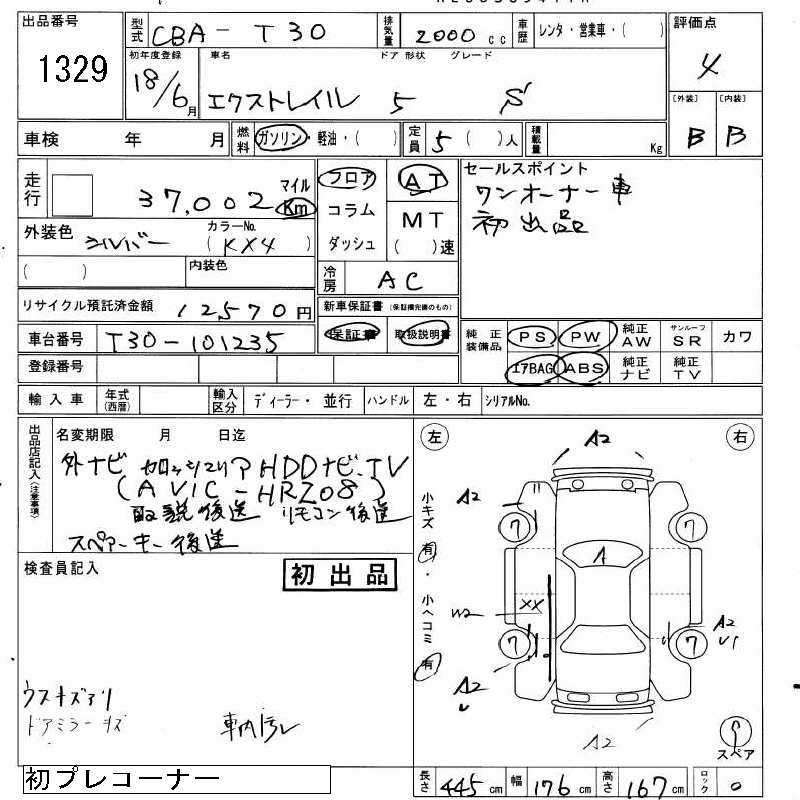 出品番号 1329
型式 CBA-T30
排気量 2000 cc
車歴 レンタ・営業車・( )
評価点 4
初年度登録 18/6月
車名 エクストレイル
ドア 形状 5
グレード S
[外装] B
[内装] B
車検 年 月
燃料 ガソリン・軽油・( )
定員 5 ( )人
積載量 Kg
走行 37,002 マイル Km
フロア コラム ダッシュ
AT MT ( )速
セールスポイント
ワンオーナー車
初出品
外装色 シルバー
カラーNo. (KX4)
( ) 内装色
冷房 AC
リサイクル預託済金額 12570円
新車保証書 (保証継続のもの)
保証書 取扱説明書
車台番号 T30-101235
純正装備品 PS PW 純正AW サンルーフSR カワ
エアBAG ABS 純正ナビ 純正TV
登録番号
輸入車 年式(西暦) 輸入区分 ディーラー・並行 ハンドル 左・右 シリアルNo.
出品店記入(注意事項)
名変期限 月 日迄
外ナビ カロッツェリア HDDナビ.TV
(AVIC-HRZ08)
取説後送 リモコン後送
スペアーキー後送
検査員記入
初出品
ウスキズアリ
ドアミラーキズ
車内汚レ
初プレコーナー
左 右
小キズ 有・小ヘコミ 有
A2
A2
7 7
A
XX
W2
7 7
A2
U1
A2
A2
スペア
長さ 445cm 幅 176cm 高さ 167cm ロック 0